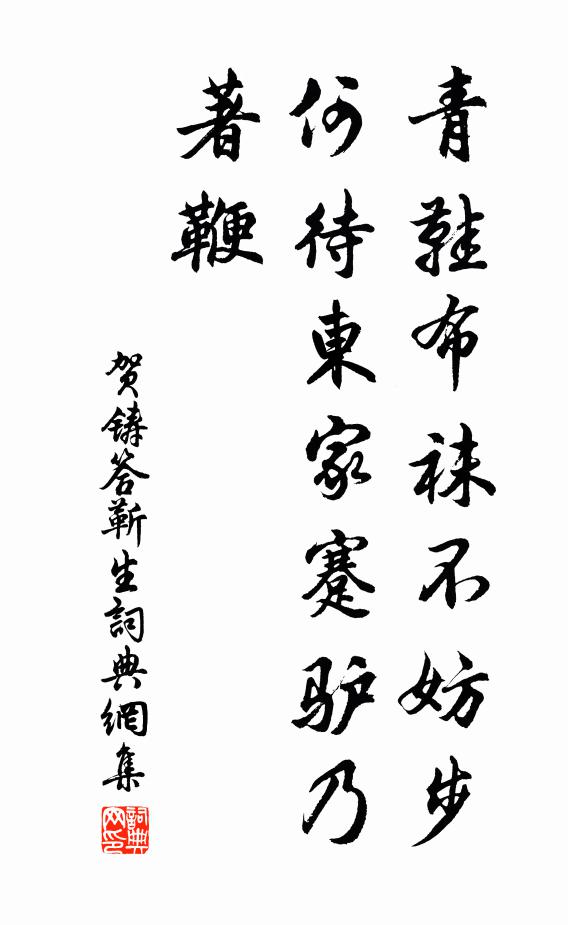 青鞋布袜不妨步
何待東家蹇驴乃
著鞭
贺铸答靳生詞典網集
詞典
网印